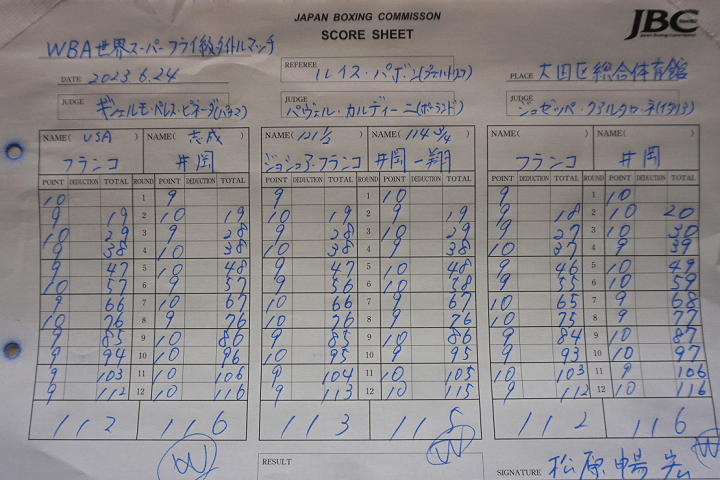 JAPAN BOXING COMMISSON
SCORE SHEET
JBC
WBA世界スーパーフライ級タイトルマッチ
REFEREE ルイス・パボン(プエルトリコ)
DATE 2023.6.24
PLACE 大田区総合体育館
JUDGE ギジェルモ・ペレス・ピネーダ(パナマ)
JUDGE パヴェル・カルディーニ(ポーランド)
JUDGE ジュゼッペ・
NAME( USA ) NAME( 志成 ) NAME( 121 1/2 ) NAME( 114 3/4 ) NAME( ) NAME( )
フランコ 井岡 ジョシュア・フランコ 井岡一翔 フランコ 井岡
POINT DEDUCTION TOTAL ROUND POINT DEDUCTION TOTAL POINT DEDUCTION TOTAL ROUND POINT DEDUCTION TOTAL POINT DEDUCTION TOTAL ROUND POINT DEDUCTION TOTAL
10 1 9 9 1 10 9 1 10
9 19 2 10 19 10 19 2 9 19 9 18 2 10 20
10 29 3 9 28 9 28 3 10 29 9 27 3 10 30
9 38 4 10 38 10 38 4 9 38 10 37 4 9 39
9 47 5 10 48 9 47 5 10 48 9 46 5 10 49
10 57 6 9 57 9 56 6 10 58 9 55 6 10 59
9 66 7 10 67 10 66 7 9 67 10 65 7 9 68
10 76 8 9 76 10 76 8 9 76 10 75 8 9 77
9 85 9 10 86 9 85 9 10 86 9 84 9 10 87
9 94 10 10 96 10 95 10 9 95 9 93 10 10 97
9 103 11 10 106 9 104 11 10 105 10 103 11 9 106
9 112 12 10 116 9 113 12 10 115 9 112 12 10 116
112 116 113 115 112 116
W W W
RESULT
SIGNATURE 松原暢宏